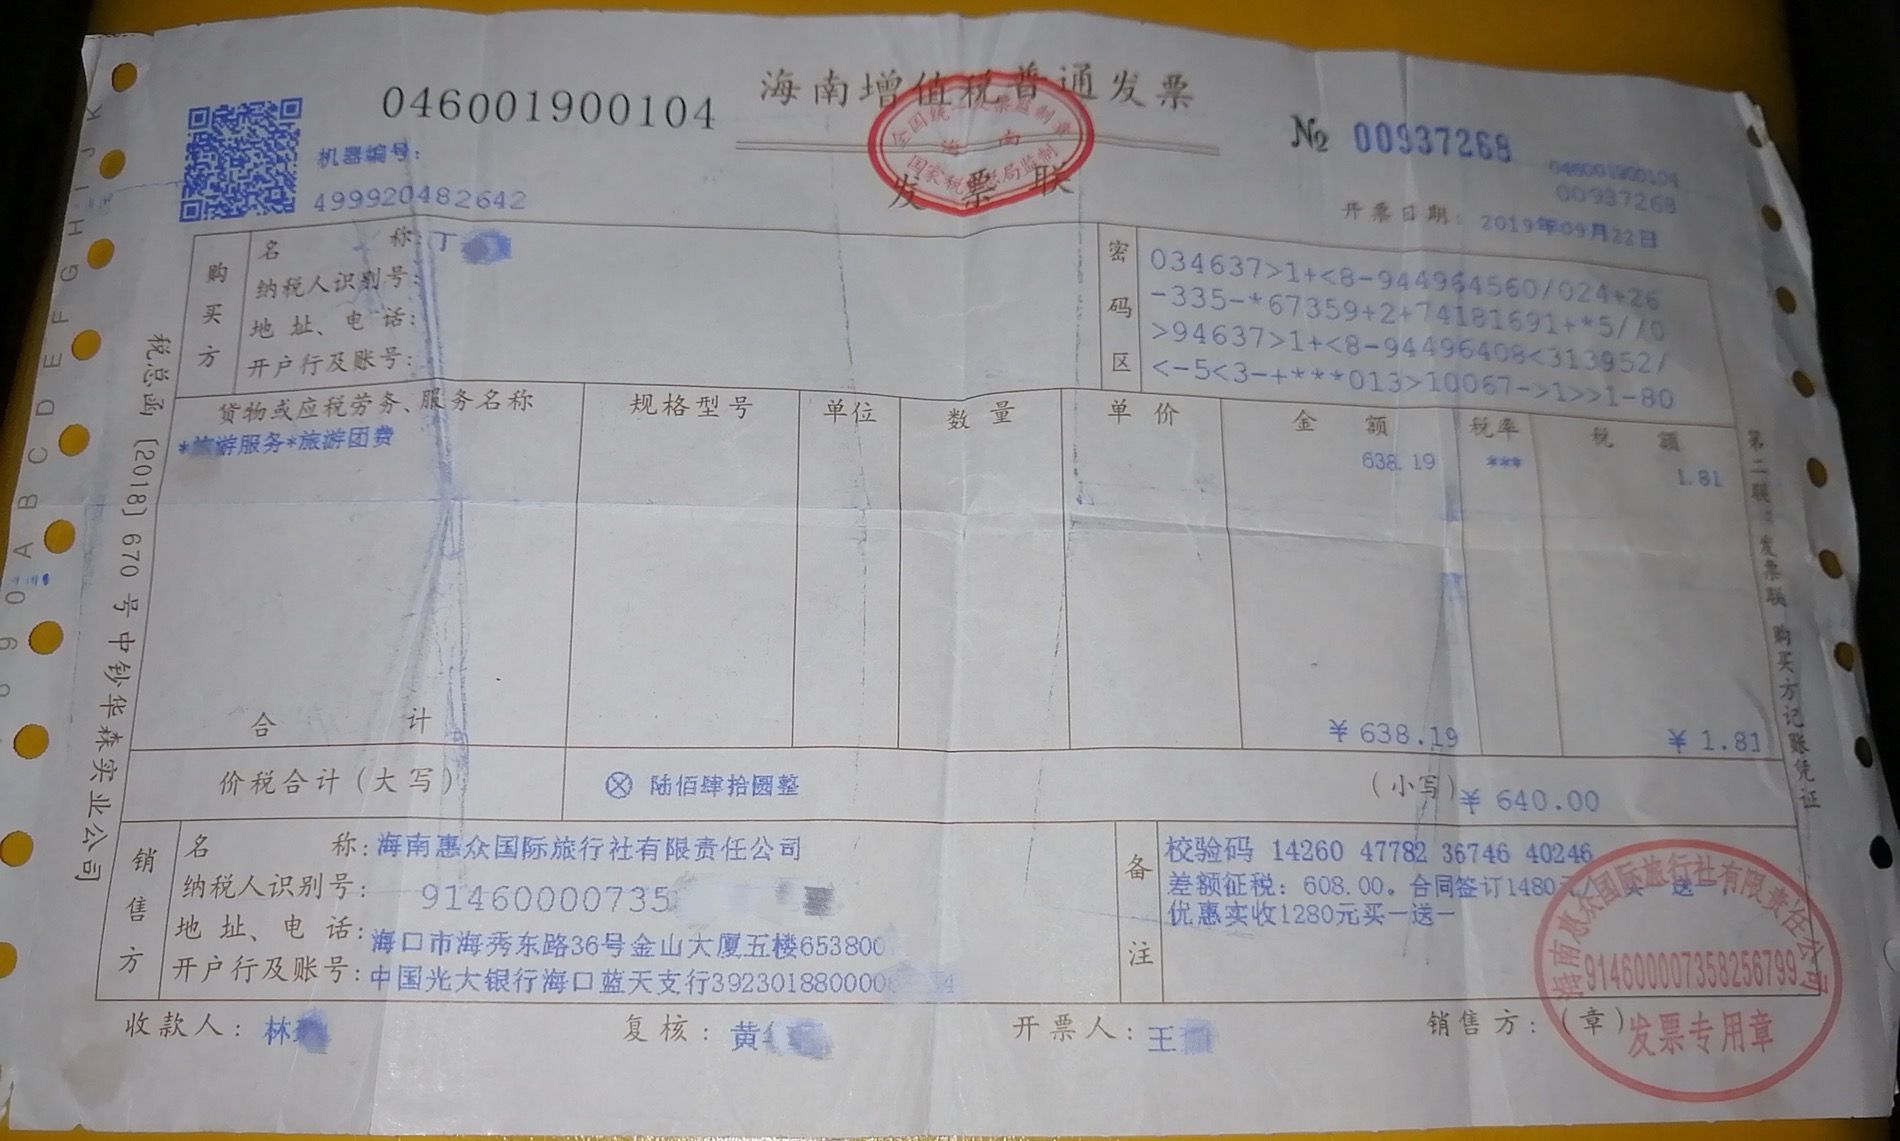 046001900104
海南增值税普通发票
全国统一发票监制章
海南
国家税务总局监制
发票联
№ 00937268
机器编号:
499920482642
046001900104
00937268
开票日期: 2019年09月22日
购买方
名称: 丁
纳税人识别号:
地址、电话:
开户行及账号:
密码区
034637>1+<8-944964560/024+26
-335-*67359+2+74181691+*5//0
>94637>1+<8-94496408<313952/
<-5<3-+***013>10067->1>>1-80
货物或应税劳务、服务名称 规格型号 单位 数量 单价 金额 税率 税额
*旅游服务*旅游团费 638.19 *** 1.81
合计 ¥638.19 ¥1.81
价税合计(大写) ⊗ 陆佰肆拾圆整 (小写) ¥640.00
销售方
名称: 海南惠众国际旅行社有限责任公司
纳税人识别号: 91460000735
地址、电话: 海口市海秀东路36号金山大厦五楼653800
开户行及账号: 中国光大银行海口蓝天支行3923018800000
备注
校验码 14260 47782 36746 40246
差额征税: 608.00。合同签订1480元/ 买一送一
优惠实收1280元买一送一
收款人: 林 复核: 黄 开票人: 王 销售方: (章)
海南惠众国际旅行社有限责任公司
914600007358256799
发票专用章
税总函〔2018〕670号中钞华森实业公司
第二联:发票联 购买方记账凭证
K J I H G F E D C B A 0 9 8